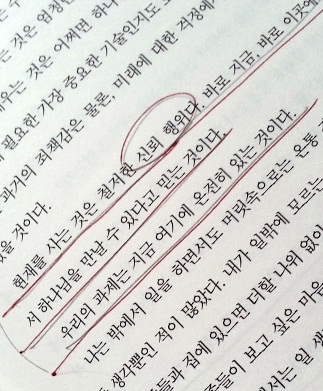 는 것은 엄청난
우는 것은 어쩌면 하나
필요한 가장 중요한 기술인지도
과거의 죄책감은 물론, 미래에 대한 걱정에
있을 것이다.
현재를 사는 것은 철저한 신뢰 행위다. 바로 지금, 바로 이곳에
서 하나님을 만날 수 있다고 믿는 것이다.
우리의 과제는 지금 여기에 온전히 있는 것이다.
나는 밖에서 일을 하면서도 머릿속으로는 온통
생각뿐인 적이 많았다. 내가 일밖에 모르는
들과 집에 있으면 더할 나위 없이
들이 보고 싶은 마음
서는 일 생